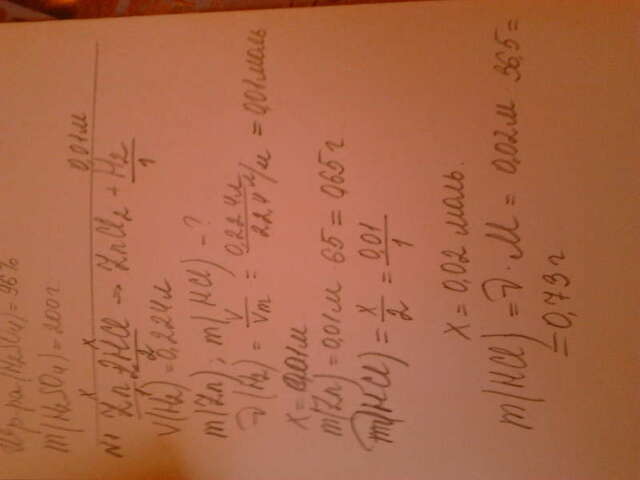 р-ра (H₂SO₄) = 96%
m(H₂SO₄) = 200г
x x 0,01м
N1 Zn + 2HCl → ZnCl₂ + H₂
1 2 1
V(H₂) = 0,224л
m(Zn); m(HCl) - ?
ν(H₂) = V/Vm = 0,224л / 22,4 л/м = 0,01моль
x = 0,01м
m(Zn) = 0,01м 65 = 0,65г
m(HCl) = x/2 = 0,01/1
x = 0,02 моль.
m(HCl) = ν · M = 0,02м 36,5 =
= 0,73г